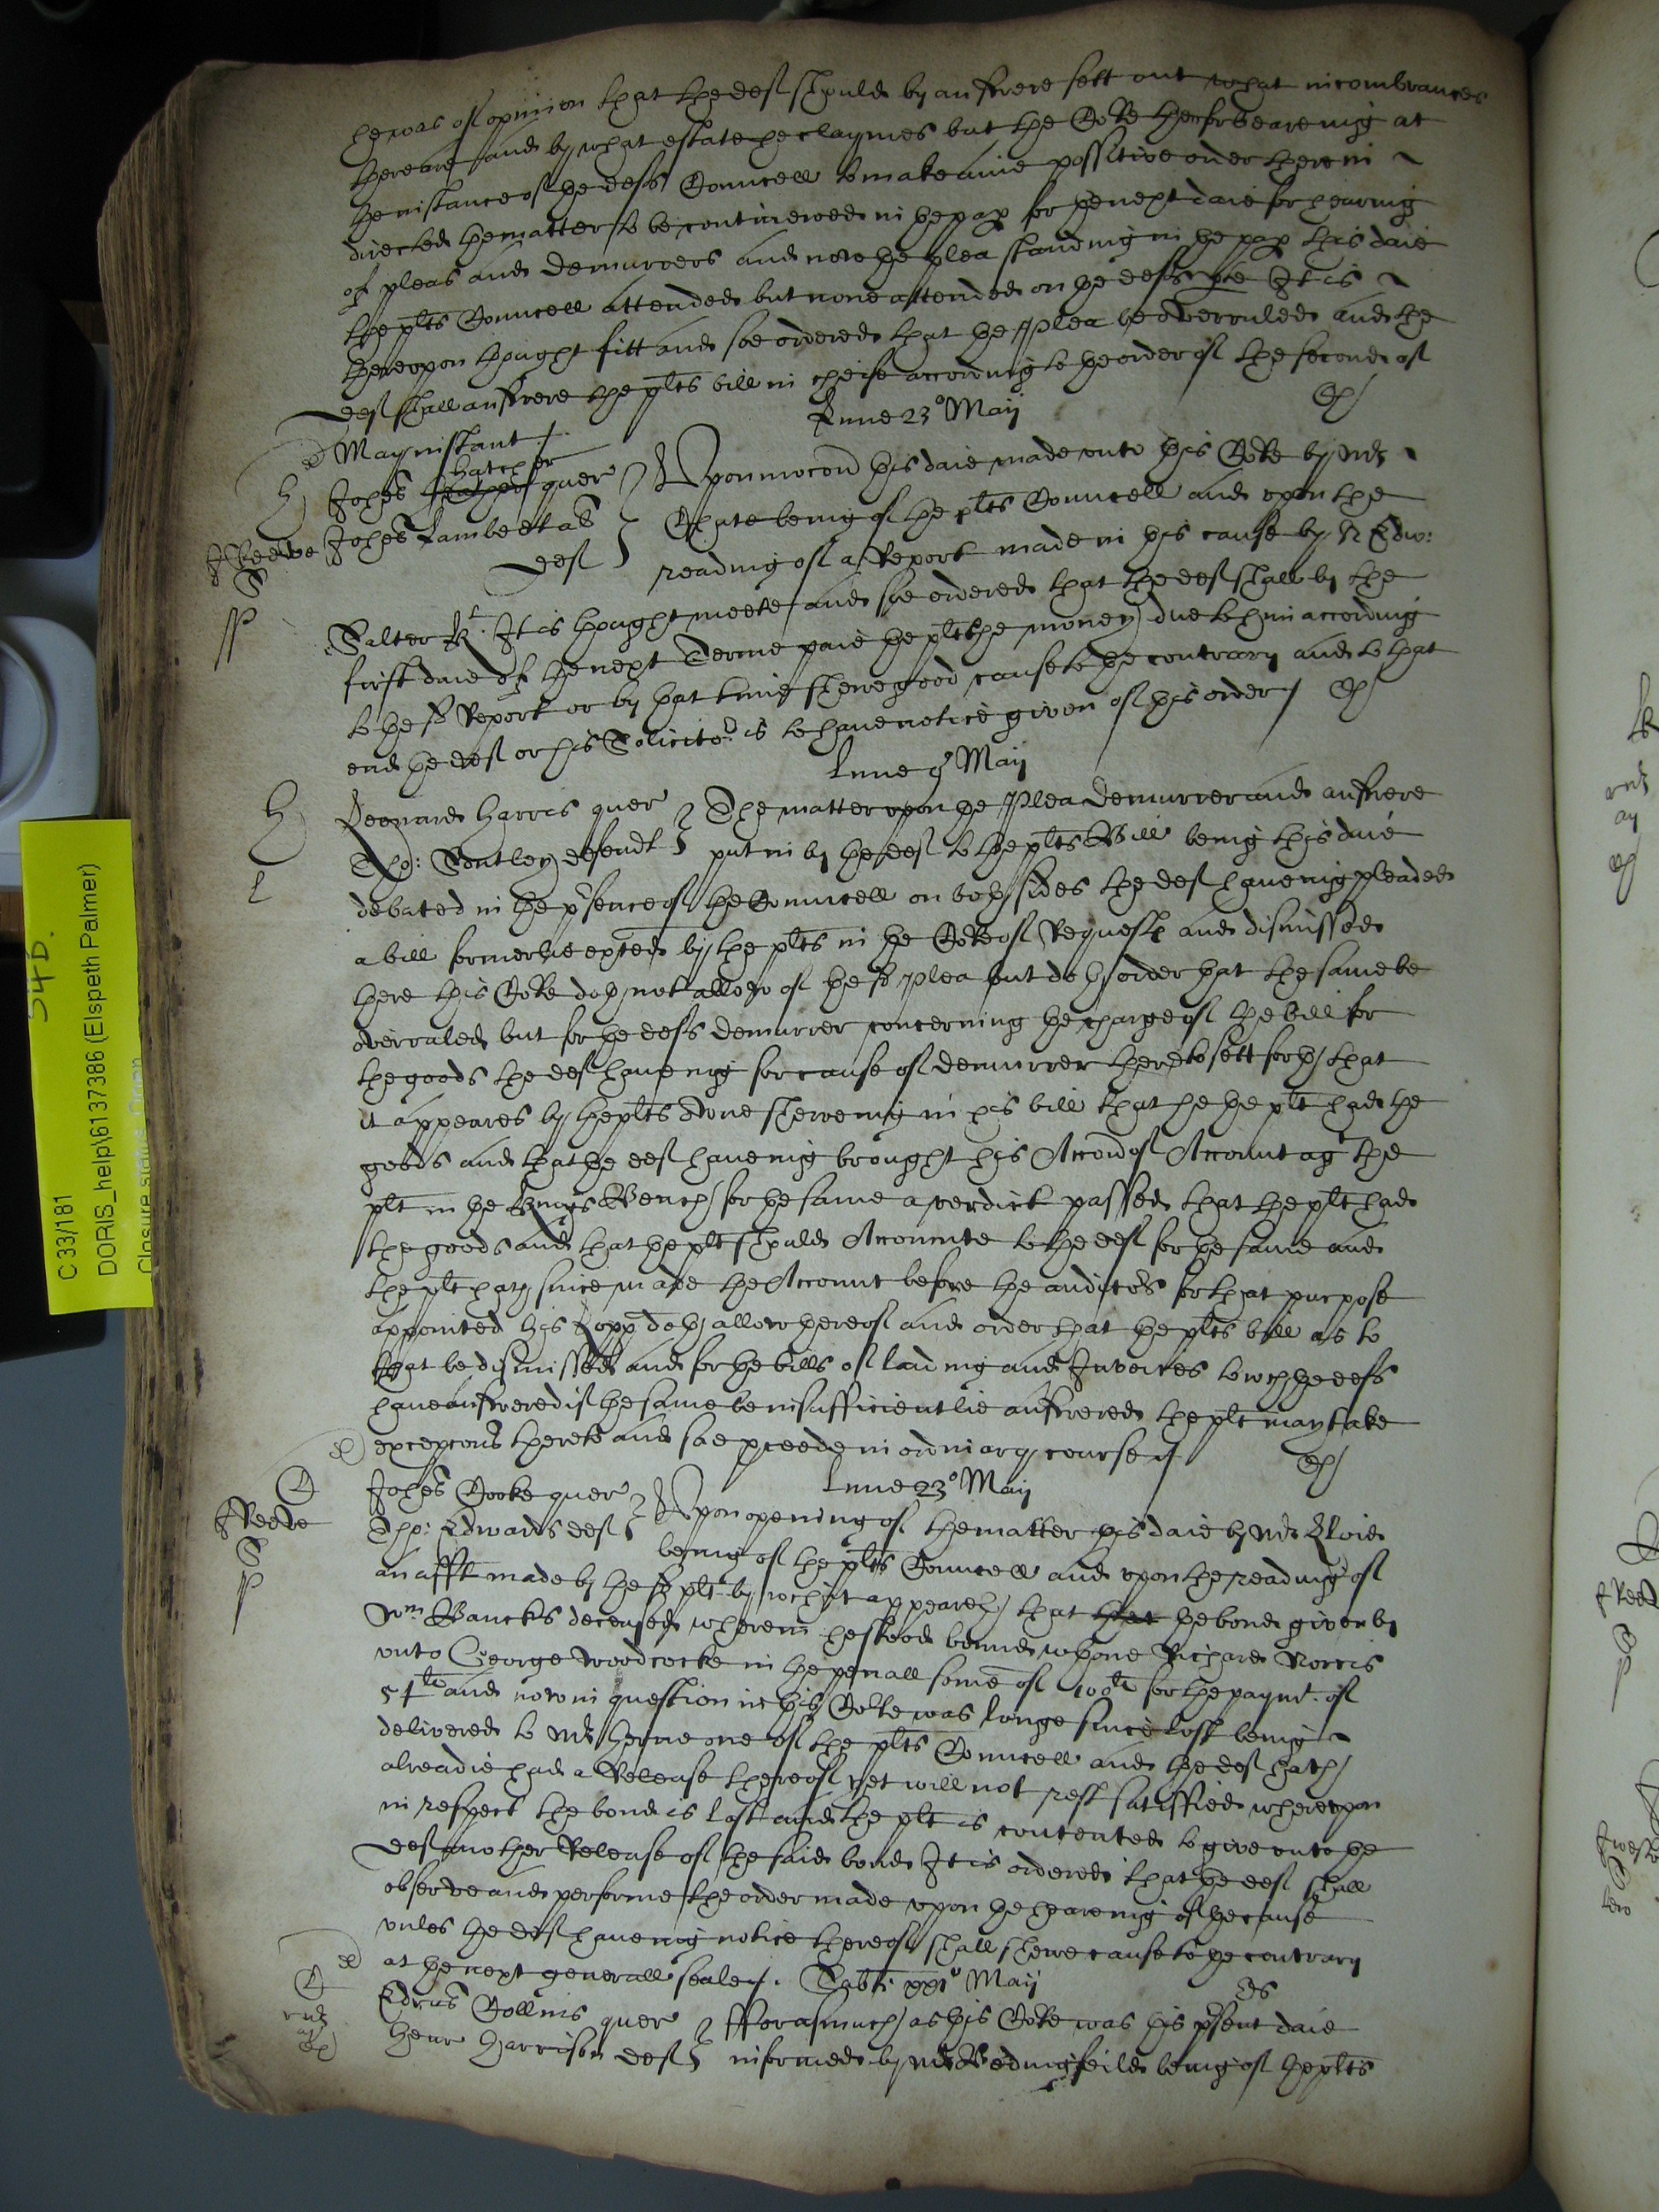 he was of opinion that the def should by answere sett out what incombrances
there are and by what estate he claymes but the Co:rte then forbeareing at
the instance of the defts Councell to make anie possitive order therein
directed the matter to be continewed in the pap for the next daie for hearing
of pleas and demurrers and now the plea standing in the pap this daie
the plts Councell attended but none attended on the defts pte It is
thereupon thought fitt and soe ordered that the Plea be overruled and the
def shall answere the plts bill in cheife according to the order of the second of
May instant
Lune 23° Maij
Johes hatcher quer
Johes Lambert als
def
Upon mocon this daie made unto this Co:rte by Mr
being of the plts Councell and upon the
reading of a Report made in this cause by Sr Edw:
Salter Kt. It is thought meete and soe ordered that the def shall by the
first daie of the next Terme paie the plt the money due to him according
to the sd Report or by that time shewe good cause to the contrary and to that
end the def or his Solicitor is to have notice given of this order
Lune 9 Maij
Leonard Harris quer
Tho: defendt
The matter upon the Plea demurrer and answere
put in by the def to the plts Bill being this daie
debated in the psence of the Councell on both sides the def haveing pleaded
a bill formerlie exhted by the plts in the Co:rte of Requests and dismissed
there this Co:rte doth not allow of the sd plea but doth order that the same be
overruled but for the defts demurrer concerning the charge of the bill for
the goods the def haveing for cause of demurrer thereto sett forth that
it appeares by the plts owne sheweing in his bill that he the plt had the
goods and that the def haveing brought his Accon of Account agt the
plt in the Kings Bench for the same a verdict passed that the plt had
the goods and that the plt should Accounte to the def for the same and
the plt hath since made the Account before the auditors for that purpose
appointed this Lopp doth allow thereof and order that the plts bill as to
that be dismissed and for the bills of ladeing and Invoices to wch the defts
have answered if the same be insufficientlie answered the plt may take
excepcons thereto and soe pceede in ordinary course
Lune 23° Maij
Johes Cooke quer
Tho: Edwards def
Reeve
Upon opening of the matter this daie by Mr Lloid
being of the plts Councell and upon the reading of
an afft made by the sd plt by wch it appeareth that the bond given by
Wm Bancks deceased wherein he stood bound wth one Richard Norris
unto George Woodcocke in the penall some of 100li for the paymt of
54li and now in question in this Co:rte was longe since lost being
delivered to Mr Herne one of the plts Councell and the def hath
alreadie had a Release thereof yet will not rest satisfied whereupon
in respect the bond is lost and the plt is contented to give unto the
def another Release of the said bond It is ordered that the def shall
observe and performe the order made upon the heareing of the cause
unles the def haveing notice thereof shall shewe cause to the contrary
at the next generall seale
Sabti xxi° Maij
Edrus Collins quer
Henr Harrison def
Forasmuch as this Co:rte was this psent daie
informed by Mr Bedingfeild being of the plts
C 33/181
DORIS_help\6137386 (Elspeth Palmer)